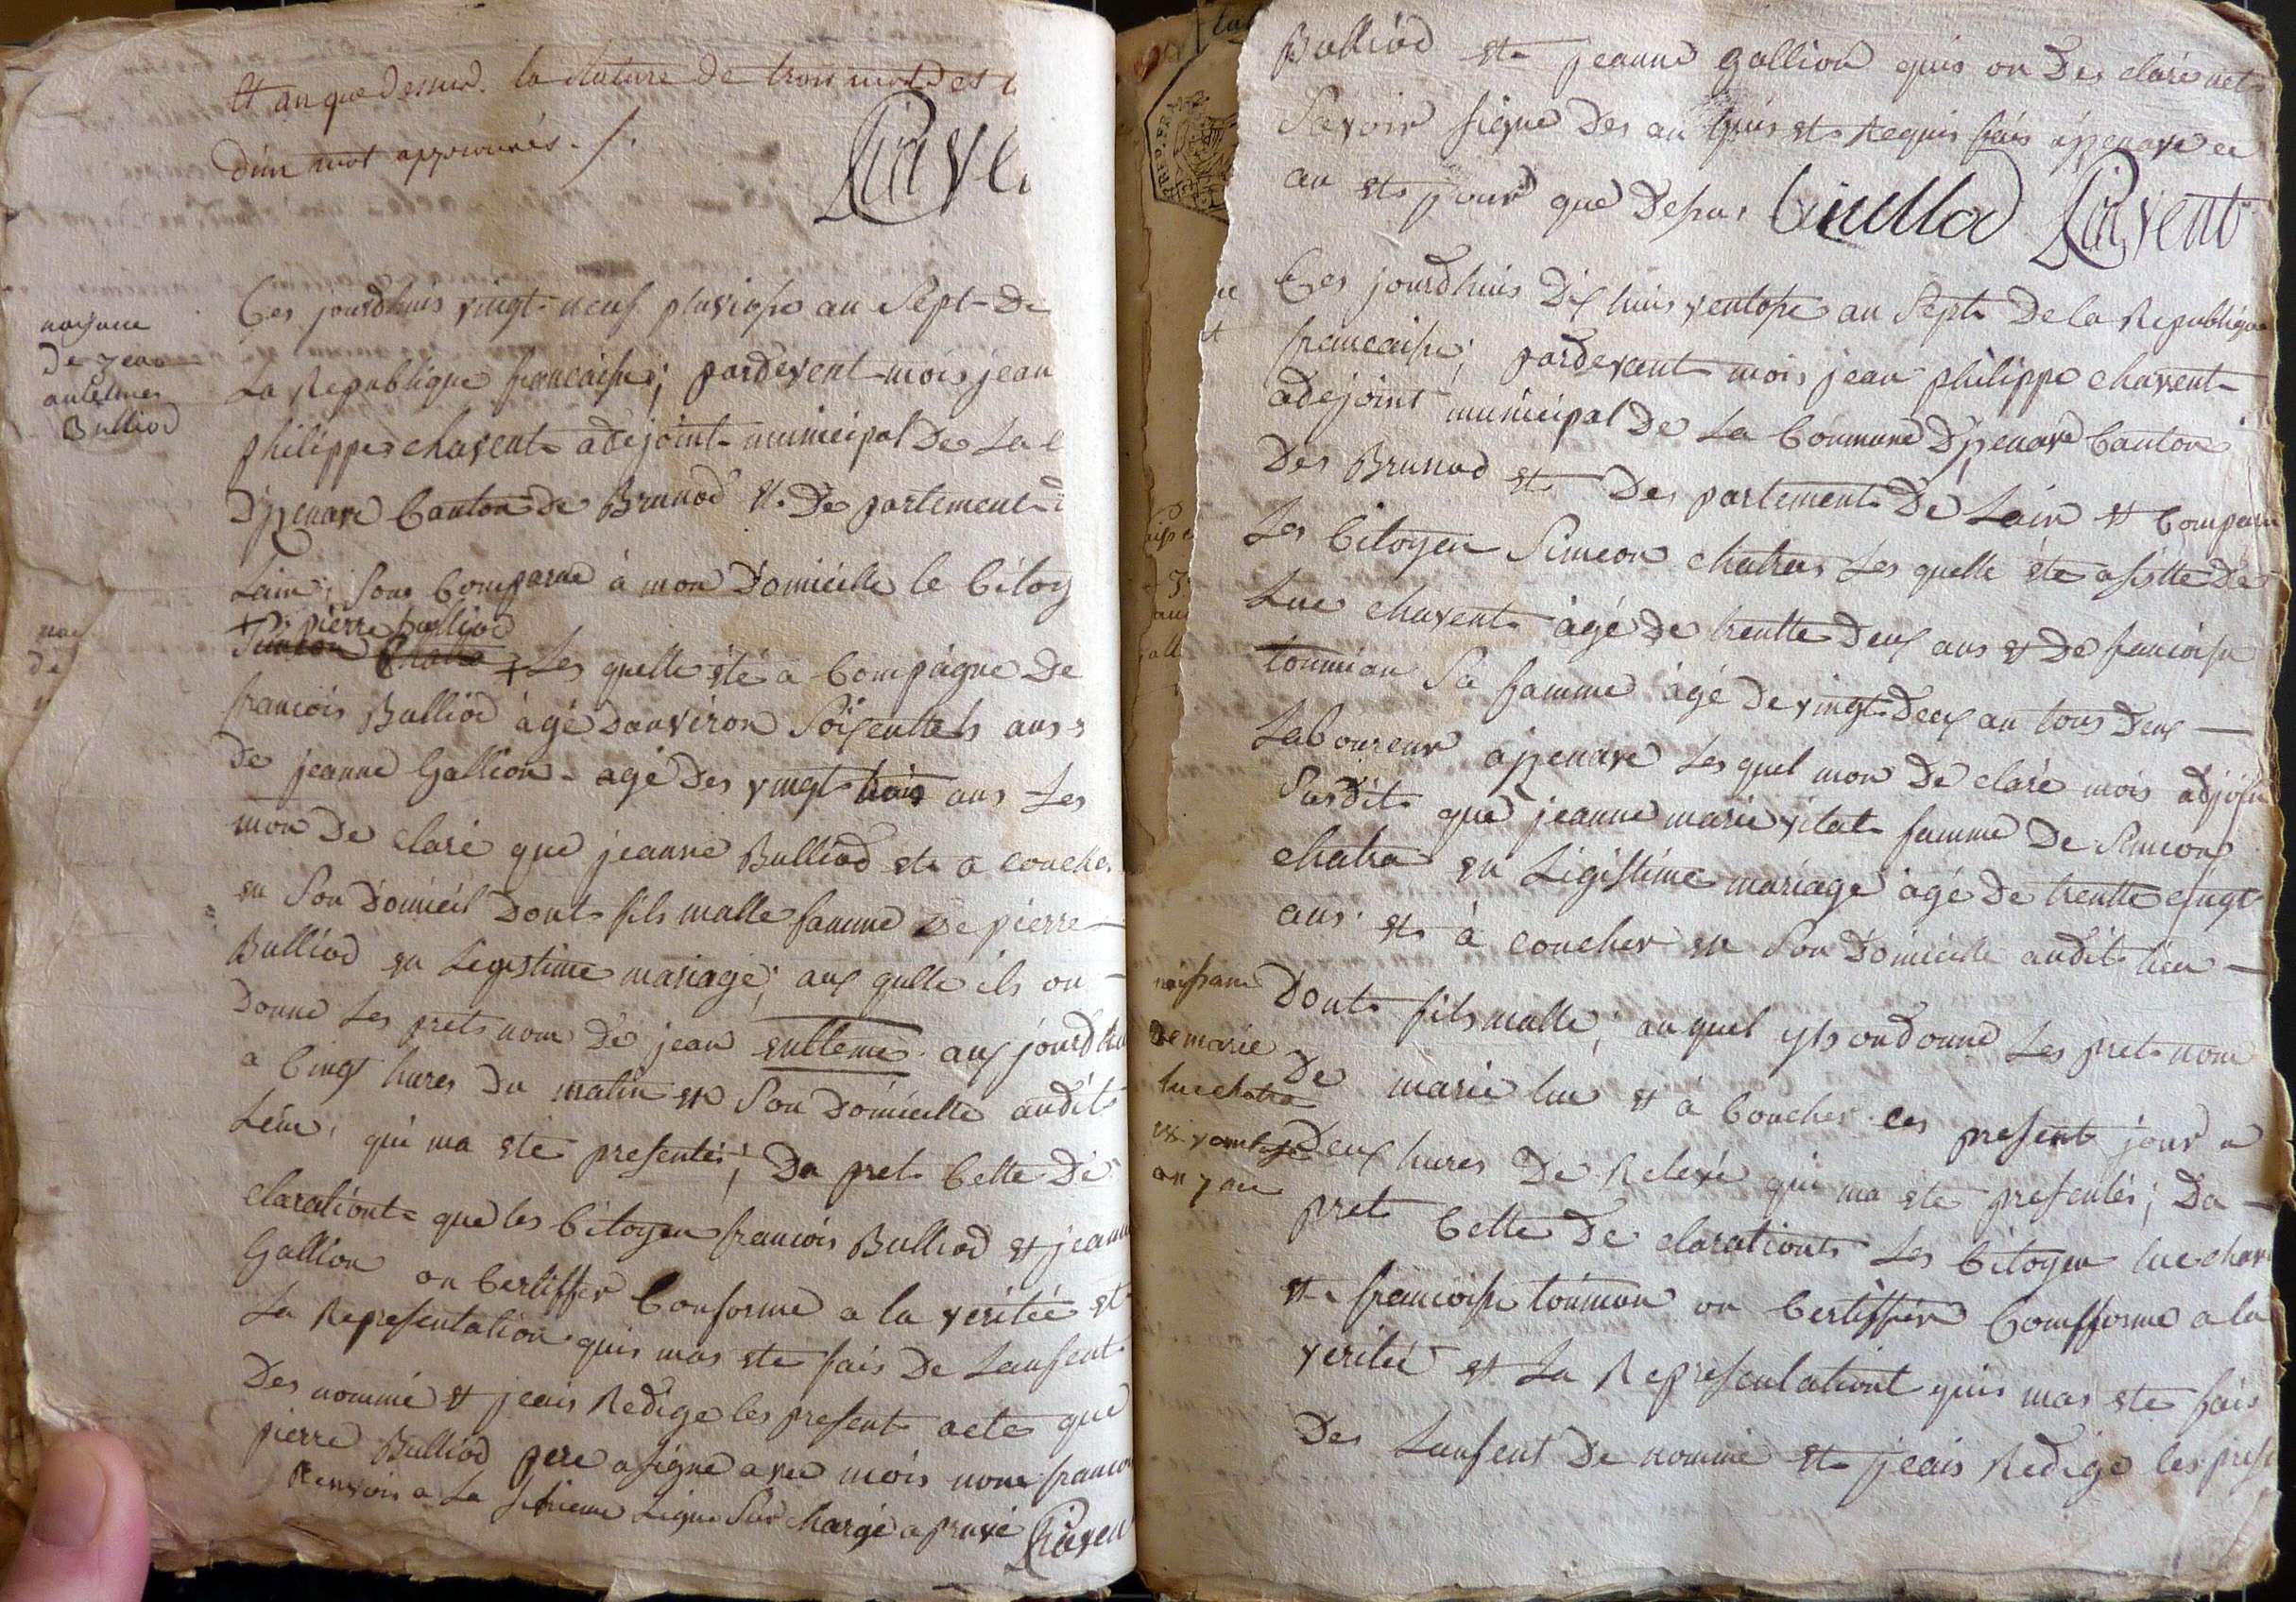 et an que dessus. la Rature de trois mots et
d'un mot approuvés ./.
Chave
naysance
De jean
antelmes
Bulliod
Ces jourdhuis vingt-neuf pluviose au Sept De
La Republique francaise; pardevent mois jean
philippes chavent adejoint municipal De La C
D'izenave Canton de Brunod et De partement D
Lain; sons Comparue à mon Domicille le Citoy
+ pierre bulliod
Simeon Chatra + Les quelle été a Compágne De
francois Bulliod àgé Danviron Soisentte ans
De jeanne Gallion - agé Des vingt trois ans Les
mon De claré que jeanne Bulliod ete a coucher
en Son Domicil Dont fils malle famme De pierre
Bulliod en Legistime mariage; aux qulle ils on
Donne Les pret nom De jean entleme aux jourdhu
a Cinq hures Du matin en Son Domicille audit
Leiu, qui ma ete presentés; Da pret Cette De
clarationt que les Citoyen francois Bulliod et jeanne
Gallion on Certiffier Conforme a la veritée et
La Representation quis mas ete fais De Lanfent
Des nommé et jeais Redige les present acte que
pierre Bulliod pere a signe avec mois none francoi
Renvois a La Ligne Sur Chargé apruvé Chavent
Bulliod et jeanne Gallion quis on Des claré net
Savoir signe Des au quis et Requis fais izenave ce
an et jour que Desus Bulliod Chavent
Ces jourdhuis Dix huis ventose an Sept De la Republique
francaise; pardevant mois jean philippe chavent
adejoint municipal De La Commune D'izenave Canton
Des Brunod et Des partement De Lain et Compar
Les Citoyen Simeon chatra Les quelle éte asistte De
Luc chavent àgé De trentte Deux ans et De francoise
tonnian Sa famme àgé De vingt Deux an tous Deux
Laboureur a izenave Les quel mon De claré mois adjoin
Susdit que jeanne marie vitat famme De Simeon
chatra en Ligistime mariage àgé De trentte cinqt
ans et à coucher en Son Domicille audit lieu
naissane
De marie
luc chatra
18 ventose
an 7 ane
Dont fils malle; au quel yls on donné Les pret nom
De marie luc et à Coucher ces present jour a
Deux hures De Relevé qui ma ete presentés; Da
pret Cette De clarationt Les Citoyen luc chave
et francoise tonnian on Certiffier Comfforme a la
veritée et La Representationt quis mas ete fais
Des Lanfent De nommé et jeais Redige les prese